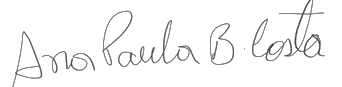 Ana Paula B. Costa